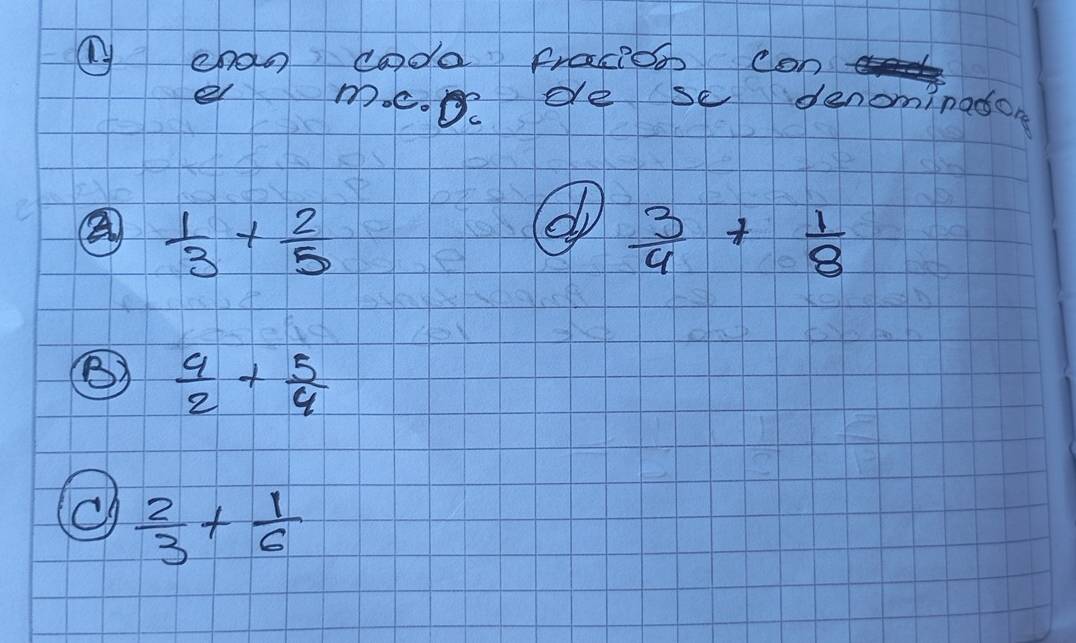 1) cada fración con
el m.c.D. de se denominadores
A) 1/3 + 2/5
d) 3/4 + 1/8
B) 4/2 + 5/4
C) 2/3 + 1/6